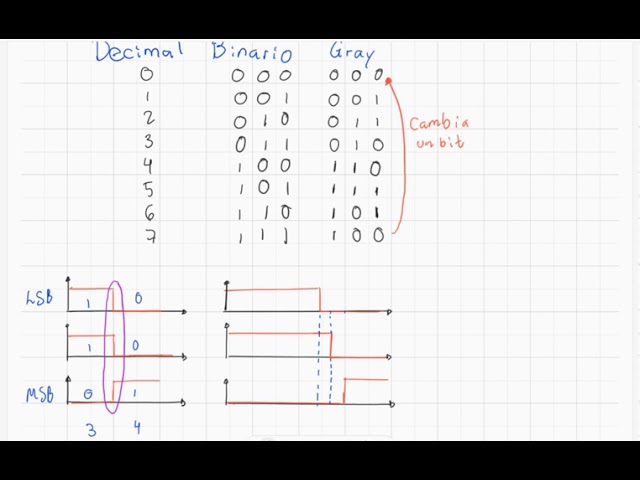 Decimal Binario Gray
0 000 000
1 001 001
2 010 011
3 011 010
4 100 110
5 101 111
6 110 101
7 111 100
Cambia
un bit
LSB 1 0
1 0
MSB 0 1
3 4